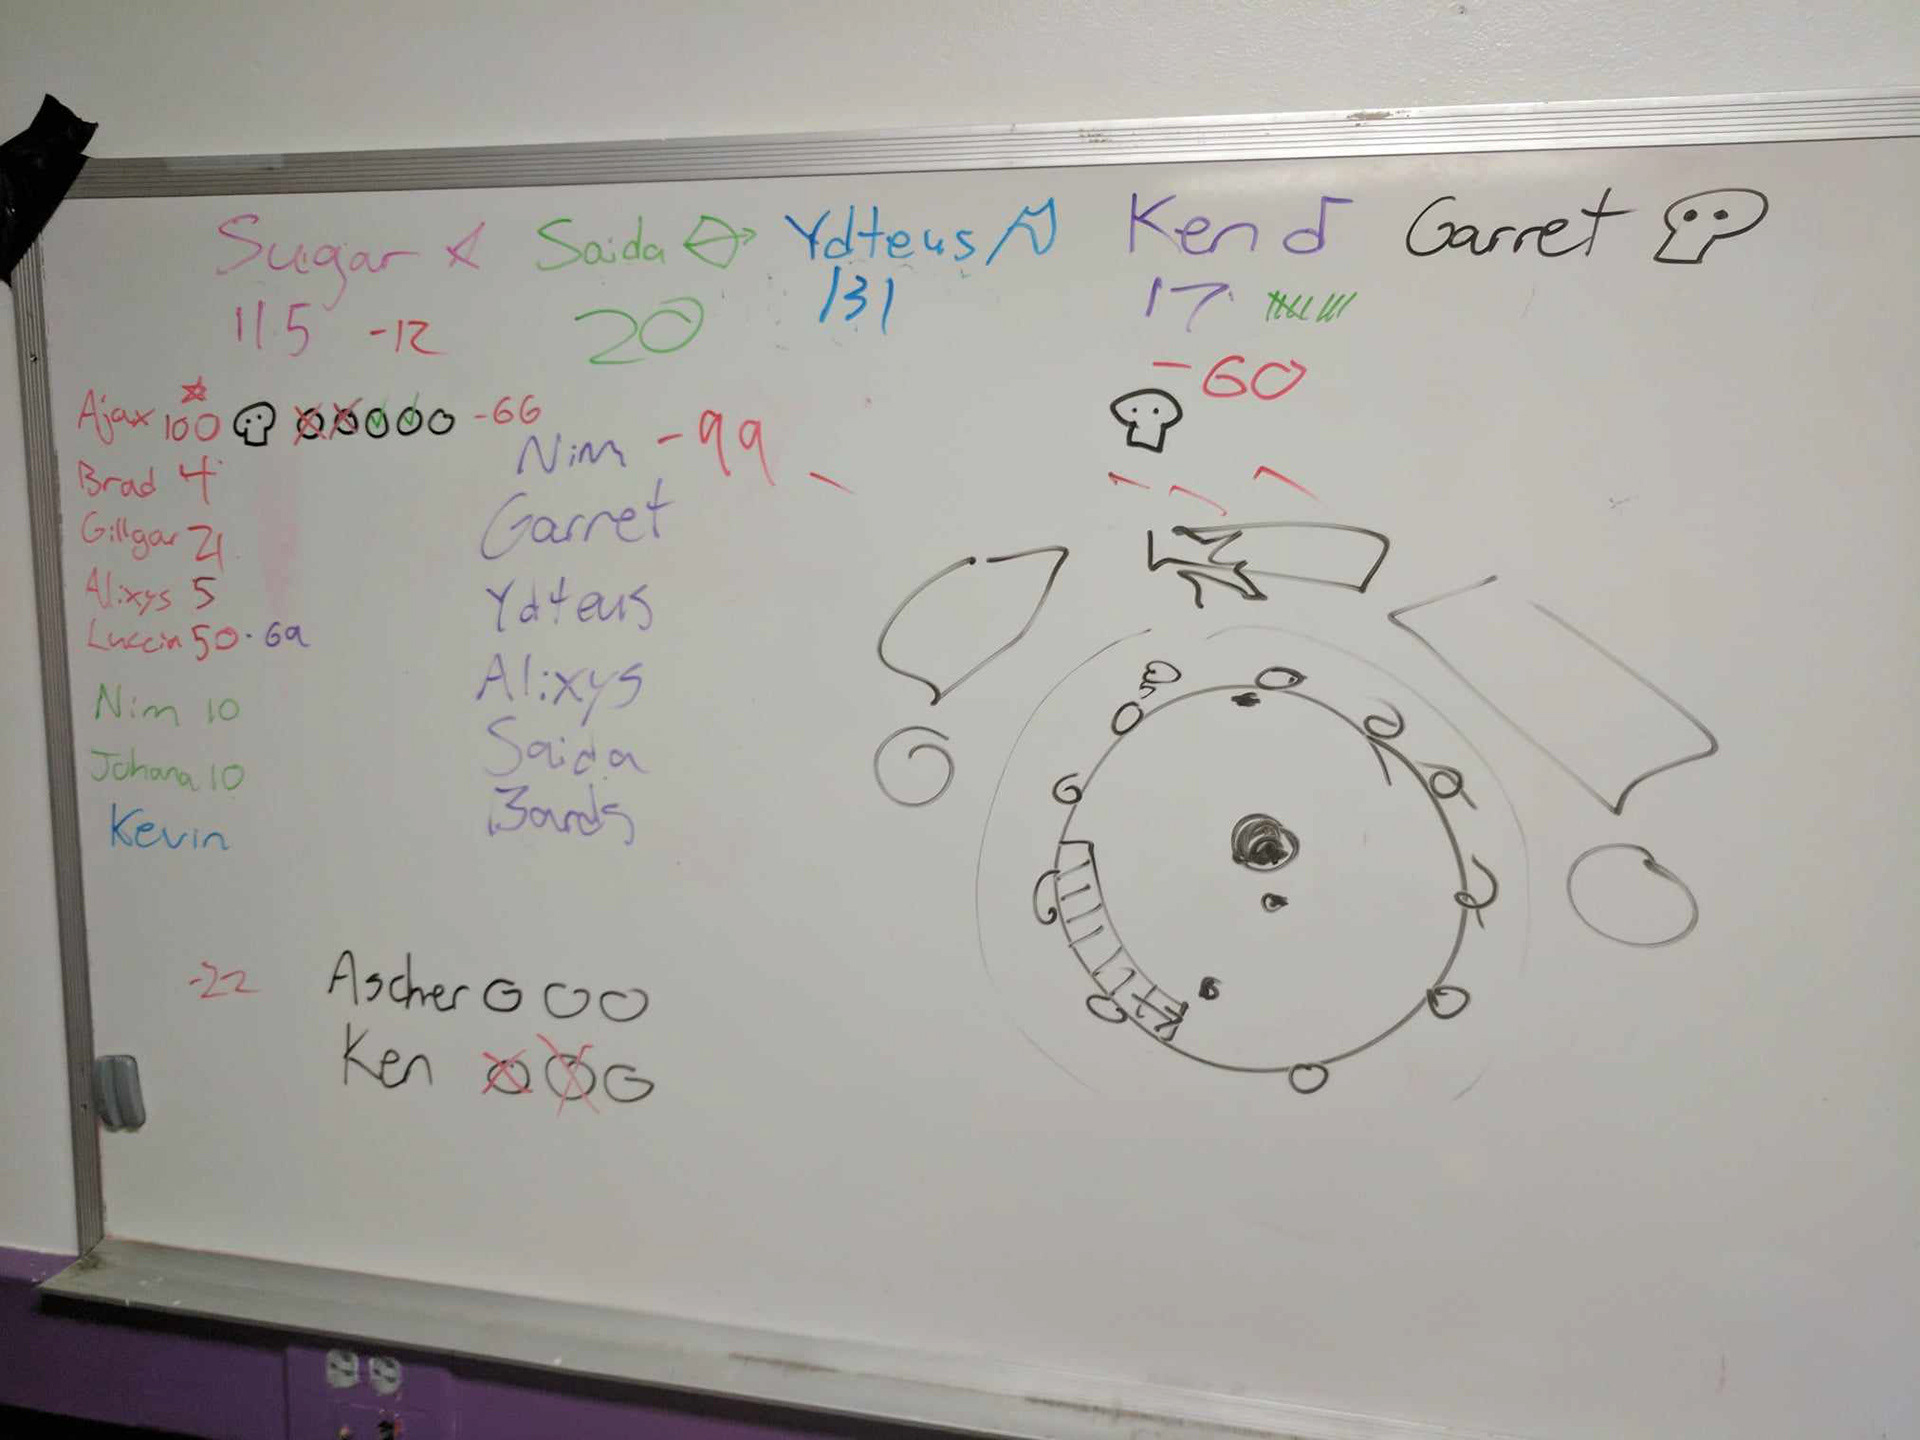 Sugar Saida Ydteus Ken Garret
115 -12 20 131 17
-60
Ajax 100 -66
Nim -99
Brad 4
Garret
Gillgar 21
Ydteus
Alixys 5
Luccin 50 - 69
Alixys
Nim 10
Saida
Johana 10
Bards
Kevin
-22 Ascher
Ken